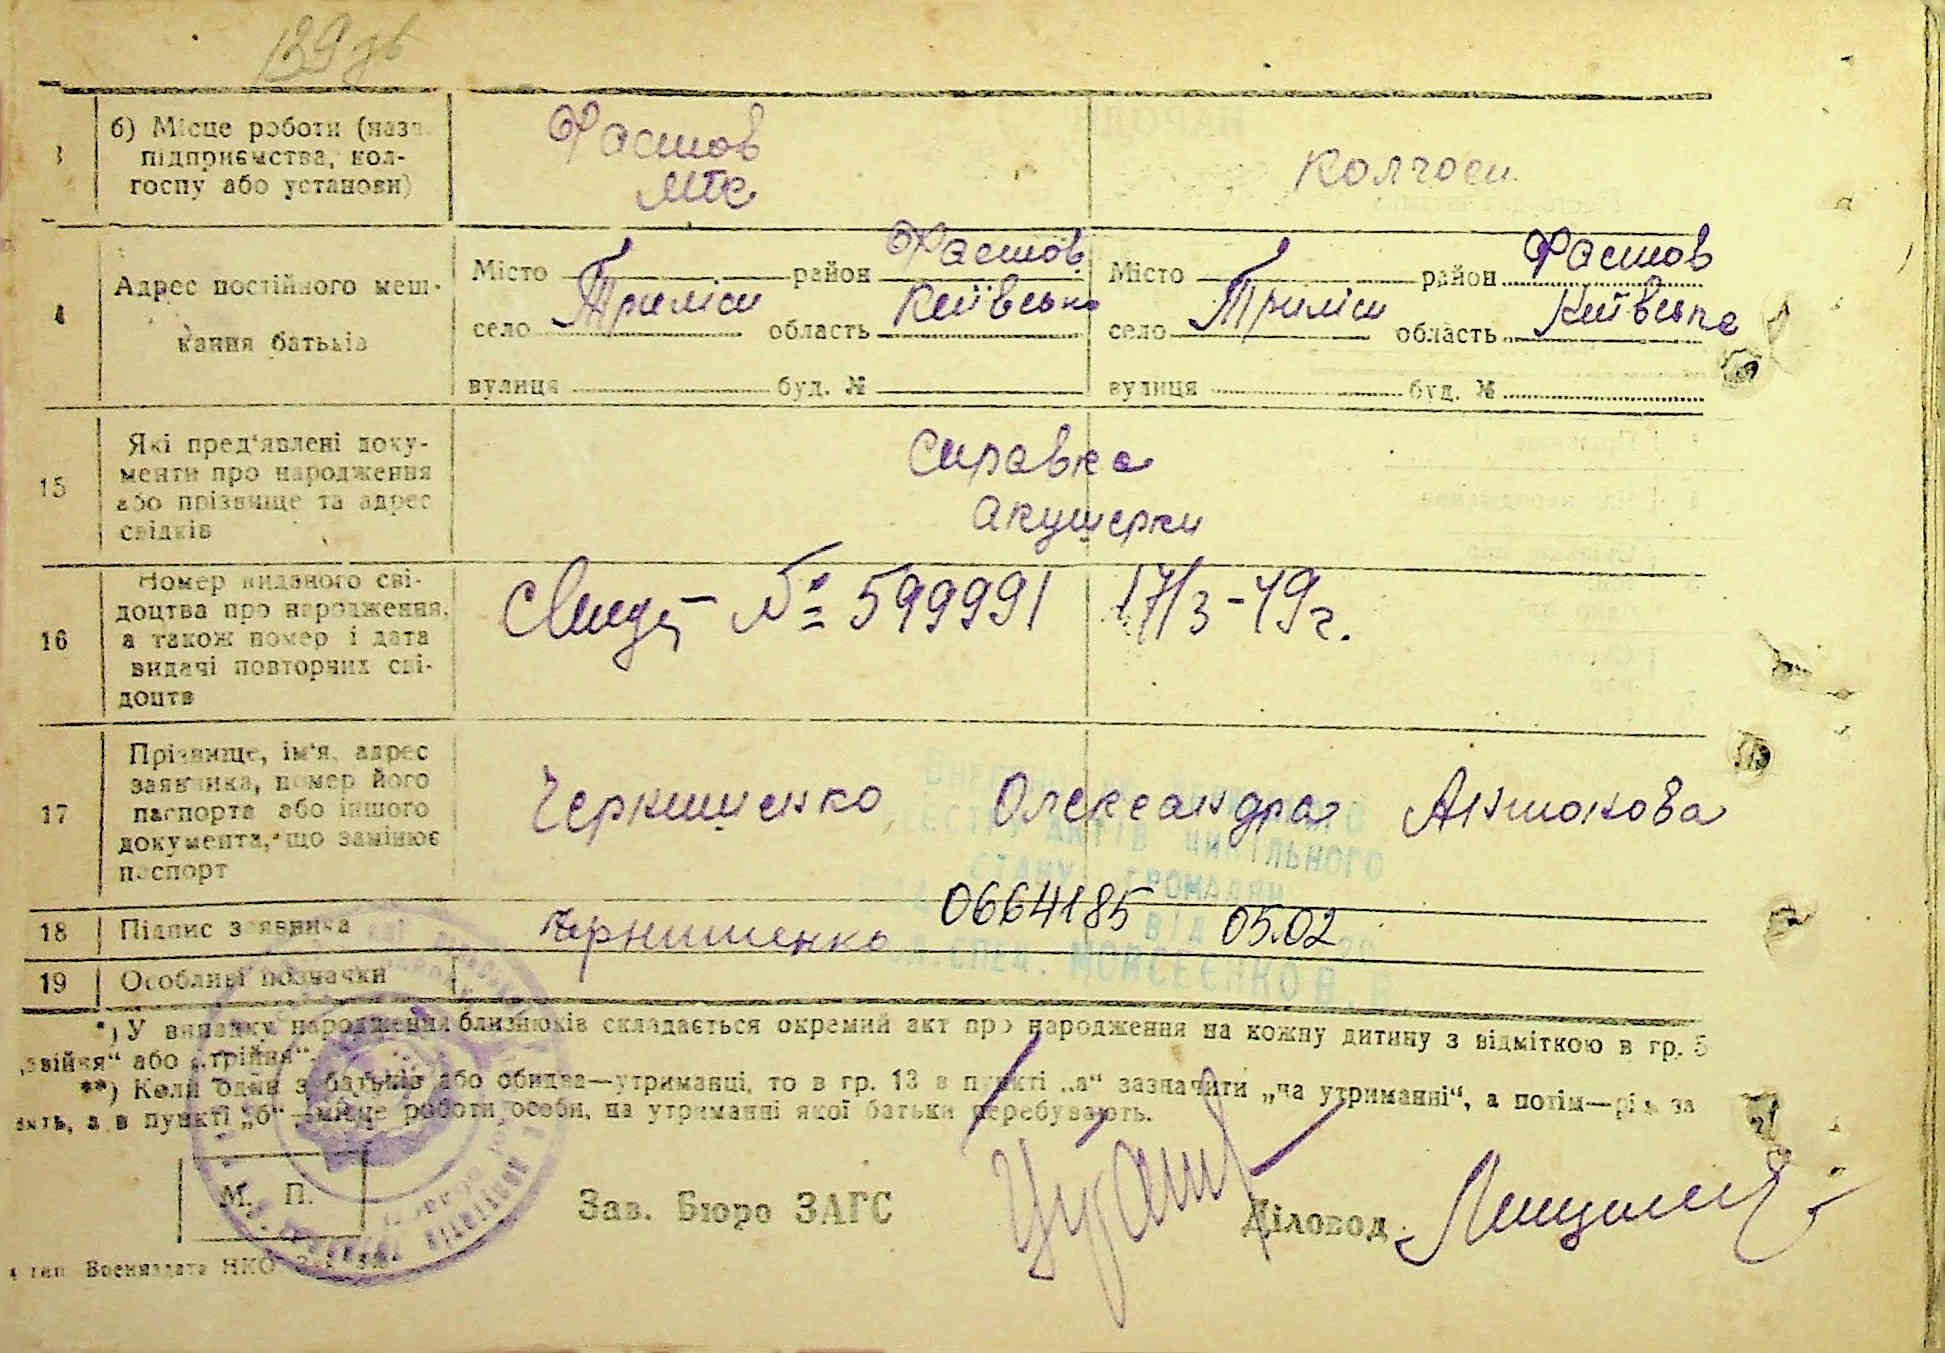 139 зв
б) Місце роботи (назв
підприємства, кол-
госпу або установи)
Фастов
МТС
колгосп
4
Адрес постійного меш-
кання батьків
Місто район Фастов
село Триліси область Київська
вулиця буд. №
Місто район Фастов
село Триліси область Київська
вулиця буд. №
15
Які пред'явлені доку-
менти про народження
або прізвище та адрес
свідків
Справка
акушерки
16
Номер виданого сві-
доцтва про народження,
а також номер і дата
видачі повторних сві-
доцтв
Свид № 599991 17/3-49г.
17
Прізвище, ім'я, адрес
заявника, номер його
паспорта або іншого
документа, що замінює
паспорт
Чернишенко Олександра Антонова
АКТІВ ЦИВІЛЬНОГО
СТАНУ ГРОМАДЯН
0664185 ВІД 05.02
СПЕЦ. МОЙСЕЄНКО В.В
18 Підпис заявника Чернишенко
19 Особливі позначки
*) У випадку народження близнюків складається окремий акт про народження на кожну дитину з відміткою в гр. 5
„двійня“ або „трійня“.
**) Коли один з батьків або обидва—утриманці, то в гр. 13 в пункті „а“ зазначити „на утриманні“, а потім—рід за
нять, а в пункті „б“—місце роботи особи, на утриманні якої батьки перебувають.
М. П.
Зав. Бюро ЗАГС
Діловод
тип. Воениздата НКО